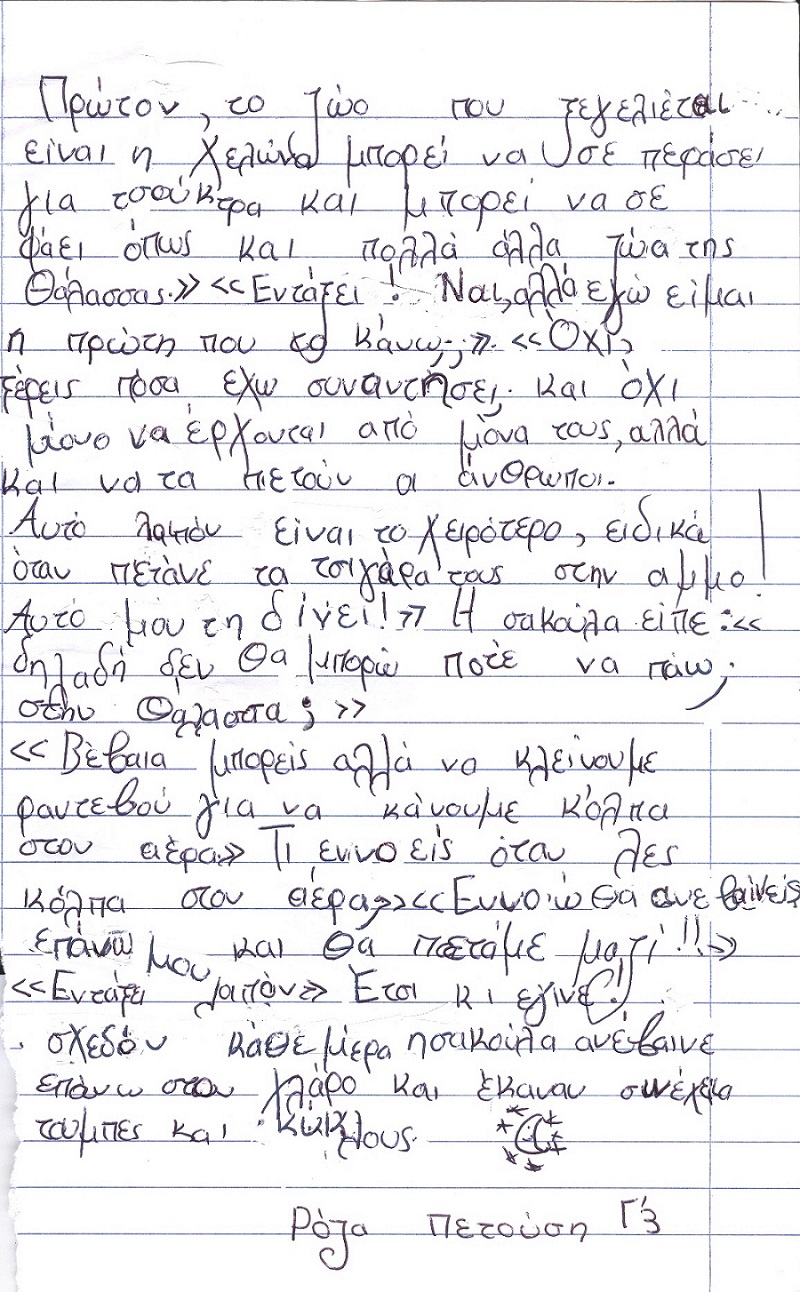 Πρώτον, το ζώο που ξεγελιέται
είναι η χελώνα μπορεί να σε περάσει
για τσούκτρα και μπορεί να σε
φάει όπως και πολλά άλλα ζώα της
Θάλασσας.» «Εντάξει! Ναι, αλλά εγώ είμαι
η πρώτη που το κάνω;» «Όχι,
ξέρεις πόσα έχω συναντήσει; και όχι
μόνο να έρχονται από μόνα τους, αλλά
και να τα πετούν οι άνθρωποι.
Αυτό λοιπόν είναι το χειρότερο, ειδικά
όταν πετάνε τα τσιγάρα τους στην αμμο!
Αυτό μου τη δίνει!» Η σακούλα είπε:«
δηλαδή δεν θα μπορώ ποτέ να πάω
στην Θάλασσα;»
«Βέβαια μπορείς αλλά να κλείνουμε
ραντεβού για να κάνουμε κόλπα
στον αέρα» Τι εννοείς όταν λες
κόλπα στον αέρα;»«Εννοώ θα ανεβαίνεις
επάνω μου και θα πετάμε μαζί!!»
«Εντάξει λοιπόν» Έτσι κι εγινε!
σχεδόν κάθε μέρα η σακούλα ανέβαινε
επάνω στον γλάρο και έκαναν συνέχεια
τούμπες και κύκλους.
Ρόζα Πετούση Γ'3